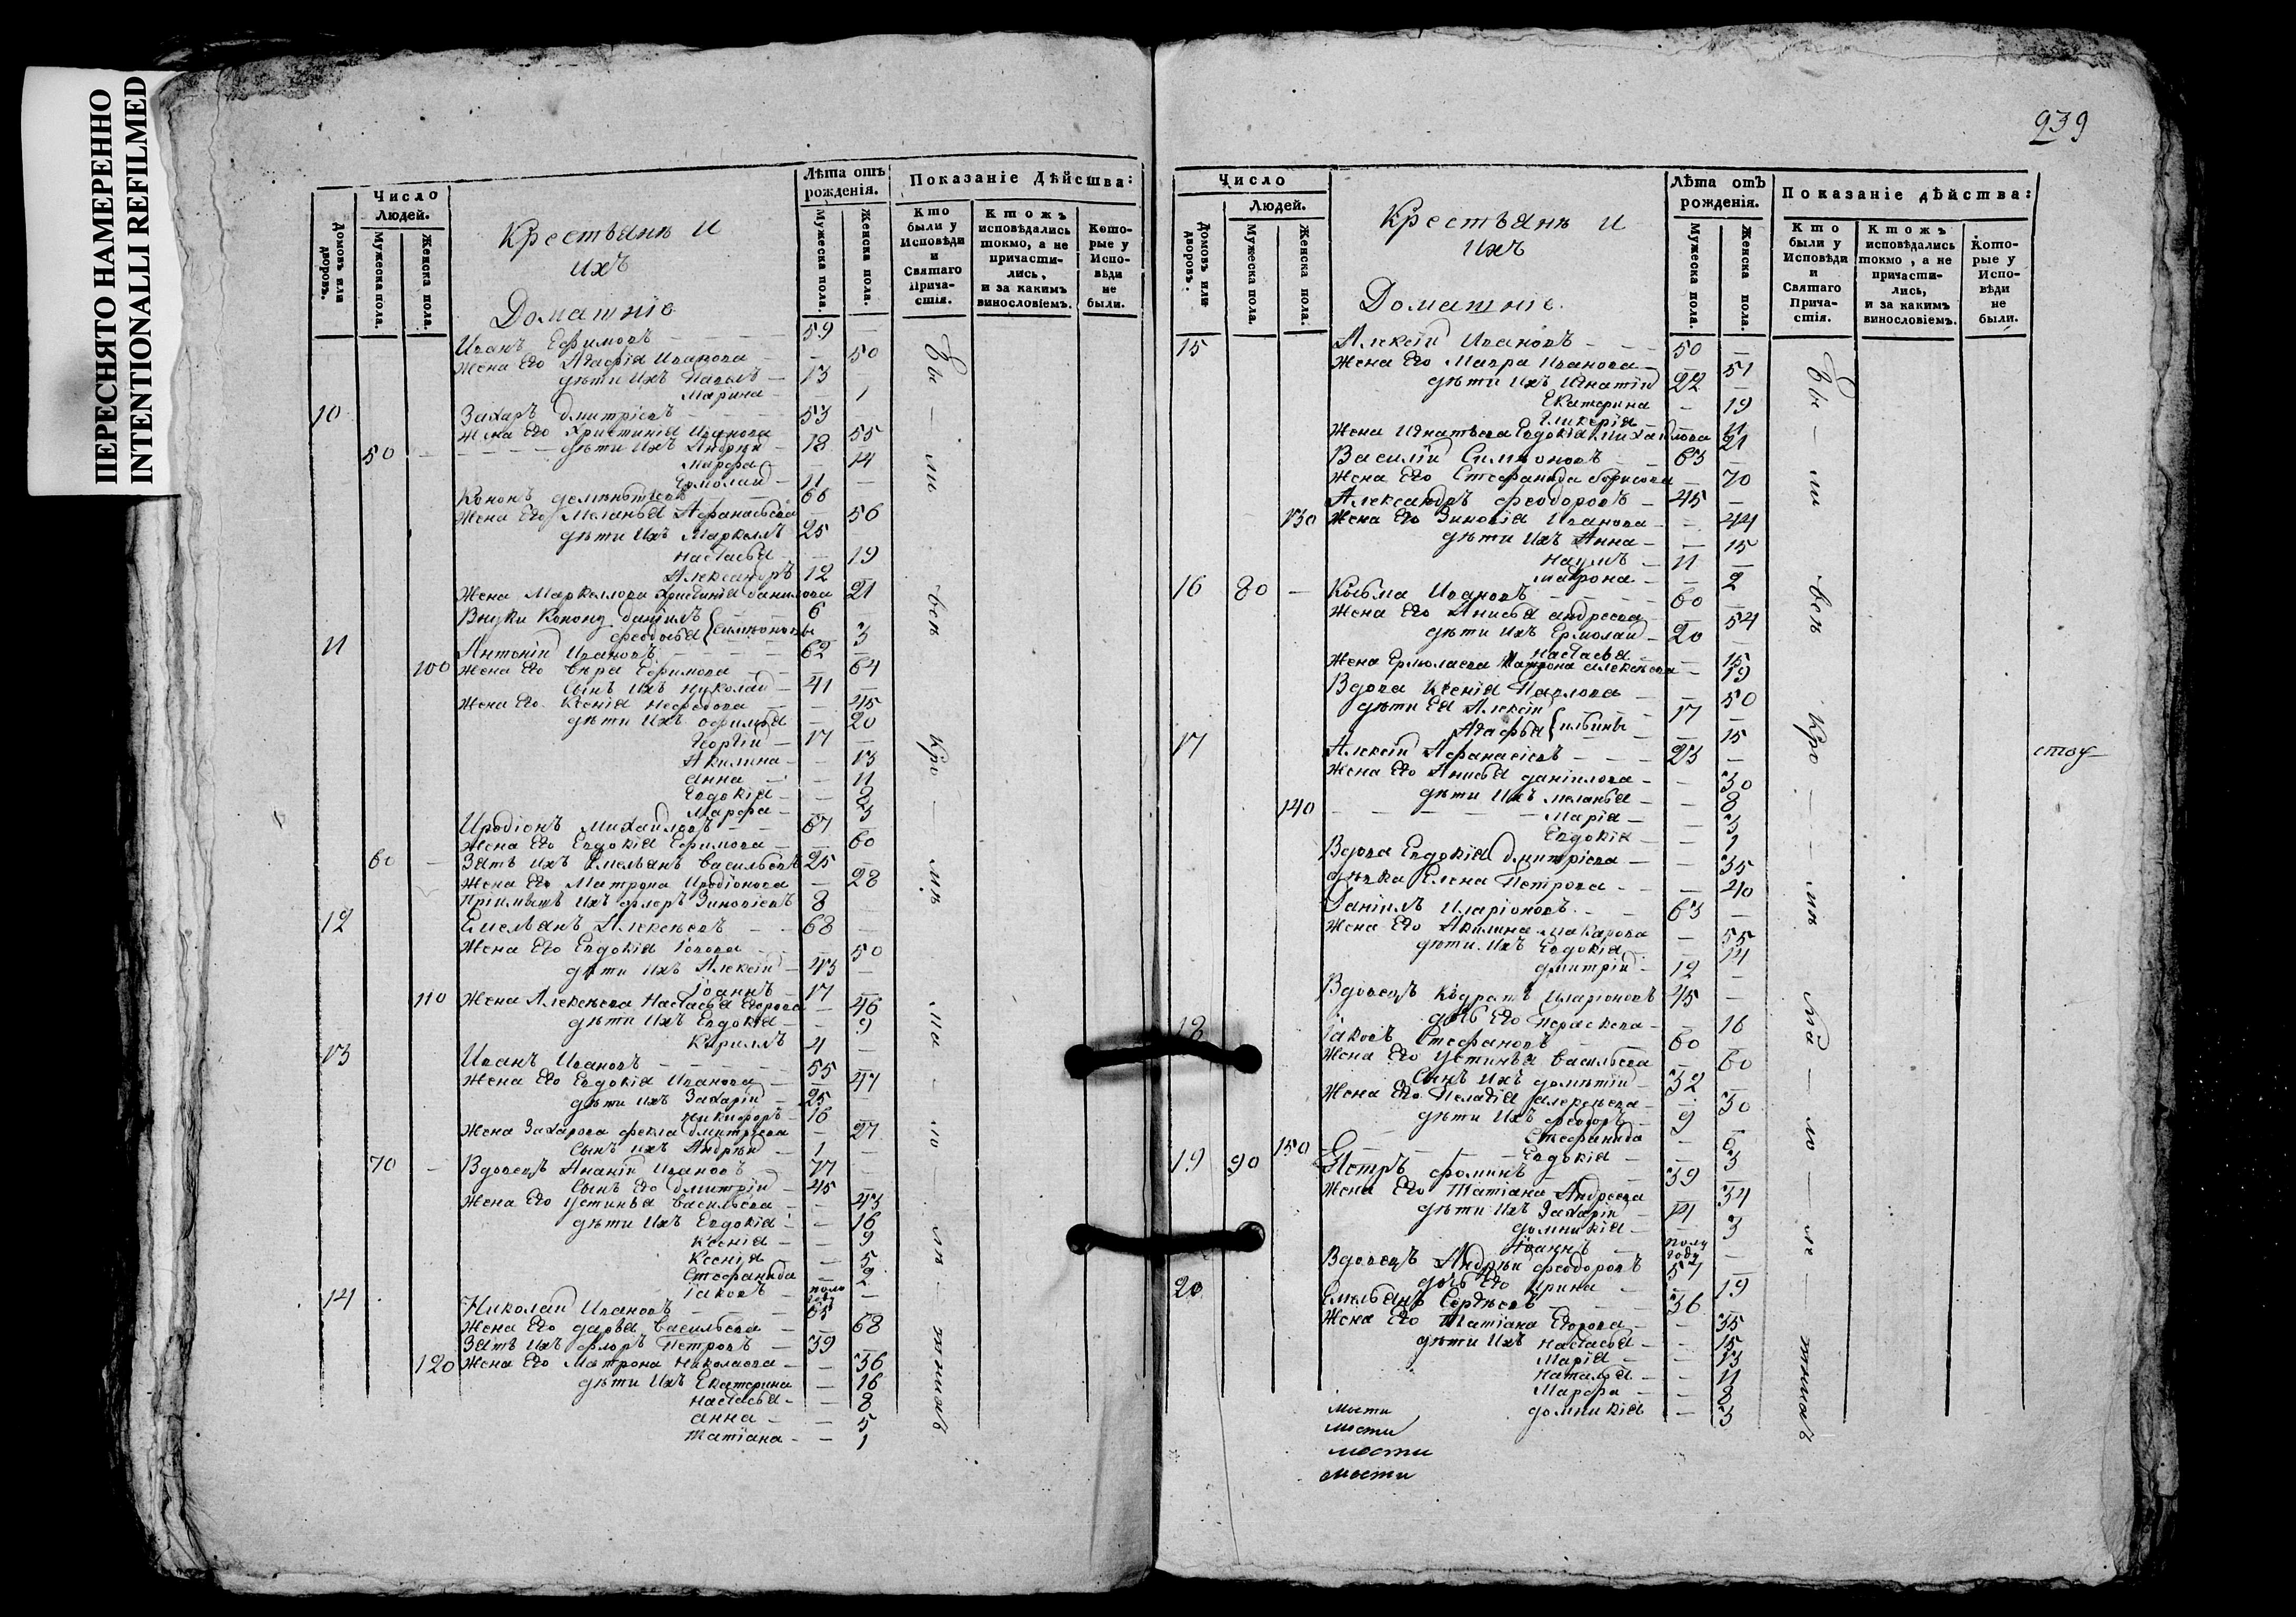 ПЕРЕСНЯТО НАМЕРЕННО
INTENTIONALLI REFILMED
Число
Людей.
Домовъ или дворовъ.
Мужеска пола.
Женска пола.
Крестьянѣ и
ихъ
Домашніе
Лѣта отъ рожденія.
Мужеска пола.
Женска пола.
Показаніе Дѣйства:
Кто были у Исповѣди и Святаго Прича-стія.
Ктожъ исповѣдались токмо, а не причасти-лись, и за какимъ винословіемъ.
Кото-рые у Испо-вѣди не были.
Иванъ Ефимовъ — 59 —
Жена Его Агафія Иванова — — 50
дѣти Ихъ Павелъ — 13
Марина — — 1
10 Захаръ дмитріевъ — 53
Жена Его Христинія Иванова 55
50 — дѣти Ихъ Андрей — 18
Марфа — — 14
Ермолай — 11 —
Кононъ 66
Жена Его Меланья Афанасьева — 56
дѣти Ихъ Маркеллъ 25
Настасья — — 19
Александръ 12
Жена Маркеллова Христинія данилова 21
Внуки Конону даніилъ 6
феодосья Симеоновы 3
11 Антоній Ивановъ — 62 —
100 Жена Его Вѣра Ефимова — — 64
Сынъ Ихъ Николай — 41 —
Жена Его Ксенія Нефедова — — 45
дѣти Ихъ Офимья — 20
Георгій — 17 —
Акилина — — 13
Анна — — 11
Евдокія — — 2
Марфа — — 3
Иродіонъ Михайловъ — 67 —
Жена Его Евдокія Ефимова — — 60
60 — Зять ихъ Емельянъ Васильевъ 25 —
Жена Его Матрона Иродіонова — 28
Пріимышъ Ихъ флоръ Зиновіевъ 8 —
12 Емельянъ Алексѣевъ — 68 —
Жена Его Евдокія Іовова — 50
дѣти ихъ Алексій — 43 —
Іоаннъ — 17 —
110 Жена Алексѣева Настасья Егорова — 46
дѣти Ихъ Евдокія — — 9
Кириллъ 4 —
13 Иванъ Ивановъ — 55 —
Жена Его Евдокія Иванова — — 47
дѣти ихъ Захарій — 25
Никифоръ — 16
Жена Захарова фекла дмитріева — 27
Сынъ ихъ Андрей — 1 —
70 — Вдовецъ Ананій Ивановъ 77 —
Сынъ Его дмитрій — 45 —
Жена Его Устинья Васильева — — 43
дѣти Ихъ Евдокія — — 16
Ксенія — — 9
Ксенія — 5
Стефанида — 2
Іаковъ — полго года —
14 Николай Ивановъ — 65
Жена Его дарья Васильева — — 68
Зять Ихъ флоръ Петровъ — 39 —
120 Жена Его Матрона Николаева — — 36
дѣти Ихъ Екатерина — 16
Настасья — — 8
Анна — — 5
Татіана — — 1
939
Число
Людей.
Домовъ или дворовъ.
Мужеска пола.
Женска пола.
Крестьянѣ и
ихъ
Домашніе.
Лѣта отъ рожденія.
Мужеска пола.
Женска пола.
Показаніе дѣйства:
Кто были у Исповѣди и Святаго Прича-стія.
Ктожъ исповѣдались токмо, а не причасти-лись, и за какимъ винословіемъ.
Кото-рые у Испо-вѣди не были.
15 Алексій Ивановъ — 50 —
Жена Его Мавра Иванова — — 51
дѣти Ихъ Игнатій 22 —
Екатерина — 19
Гликерія — 11
Жена Игнатьева Евдокія Михайлова 21
Василій Симеоновъ — 63 —
Жена Его Стефанида Борисова — 70
Александръ феодоровъ — 45 —
130 Жена Его Зиновія Иванова — — 44
дѣти Ихъ Анна — — 15
Наумъ — 11 —
Матрона — — 2
16 80 — Козьма Ивановъ — 60 —
Жена Его Анисья андреева — 54
дѣти Ихъ Ермолай — 20
Настасья — 15
Жена Ермолаева Матрона алексѣева — 19
Вдова Ксенія Павлова — 50
дѣти Ея Алексій 17 —
Агафья Ильины — 15
17 Алексій Афанасіевъ — 23 —
Жена Его Анисья даніилова — — 30
дѣти Ихъ меланья — — 8
140 — Марія — — 3
Евдокія — — 1
Вдова Евдокія дмитріева — — 35
дѣвка Елена Петрова — — 40
Даніилъ Иларіоновъ — 63 —
Жена Его Акилина Макарова — 55
дѣти Ихъ Евдокія — 14
дмитрій — 12 —
Вдовецъ Кодратъ Иларіоновъ 45 —
дочь Его Параскева — 16
18 Іаковъ Стефановъ — 60 —
Жена Его Устинья Васильева 60
Сынъ Ихъ дометій — 32
Жена Его Пелагія алексѣева — 30
дѣти Ихъ феодоръ — 9 —
Стефанида — 6
150 — Евдокія — — 3
19 90 Петръ фоминъ — 39 —
Жена Его Татіана Андреева 34
дѣти Ихъ Захарій 14
домникія — 3
Іоаннъ полу году —
Вдовецъ Андрей феодоровъ 57 —
дочь Его Ирина — 19
20 Емельянъ Сергѣевъ 36 —
Жена Его Татіана Егорова — — 35
дѣти Ихъ Настасья — — 15
Марія — — 13
Наталья — — 11
Марфа — — 8
домникія — 3
мости
мости
мости
мости